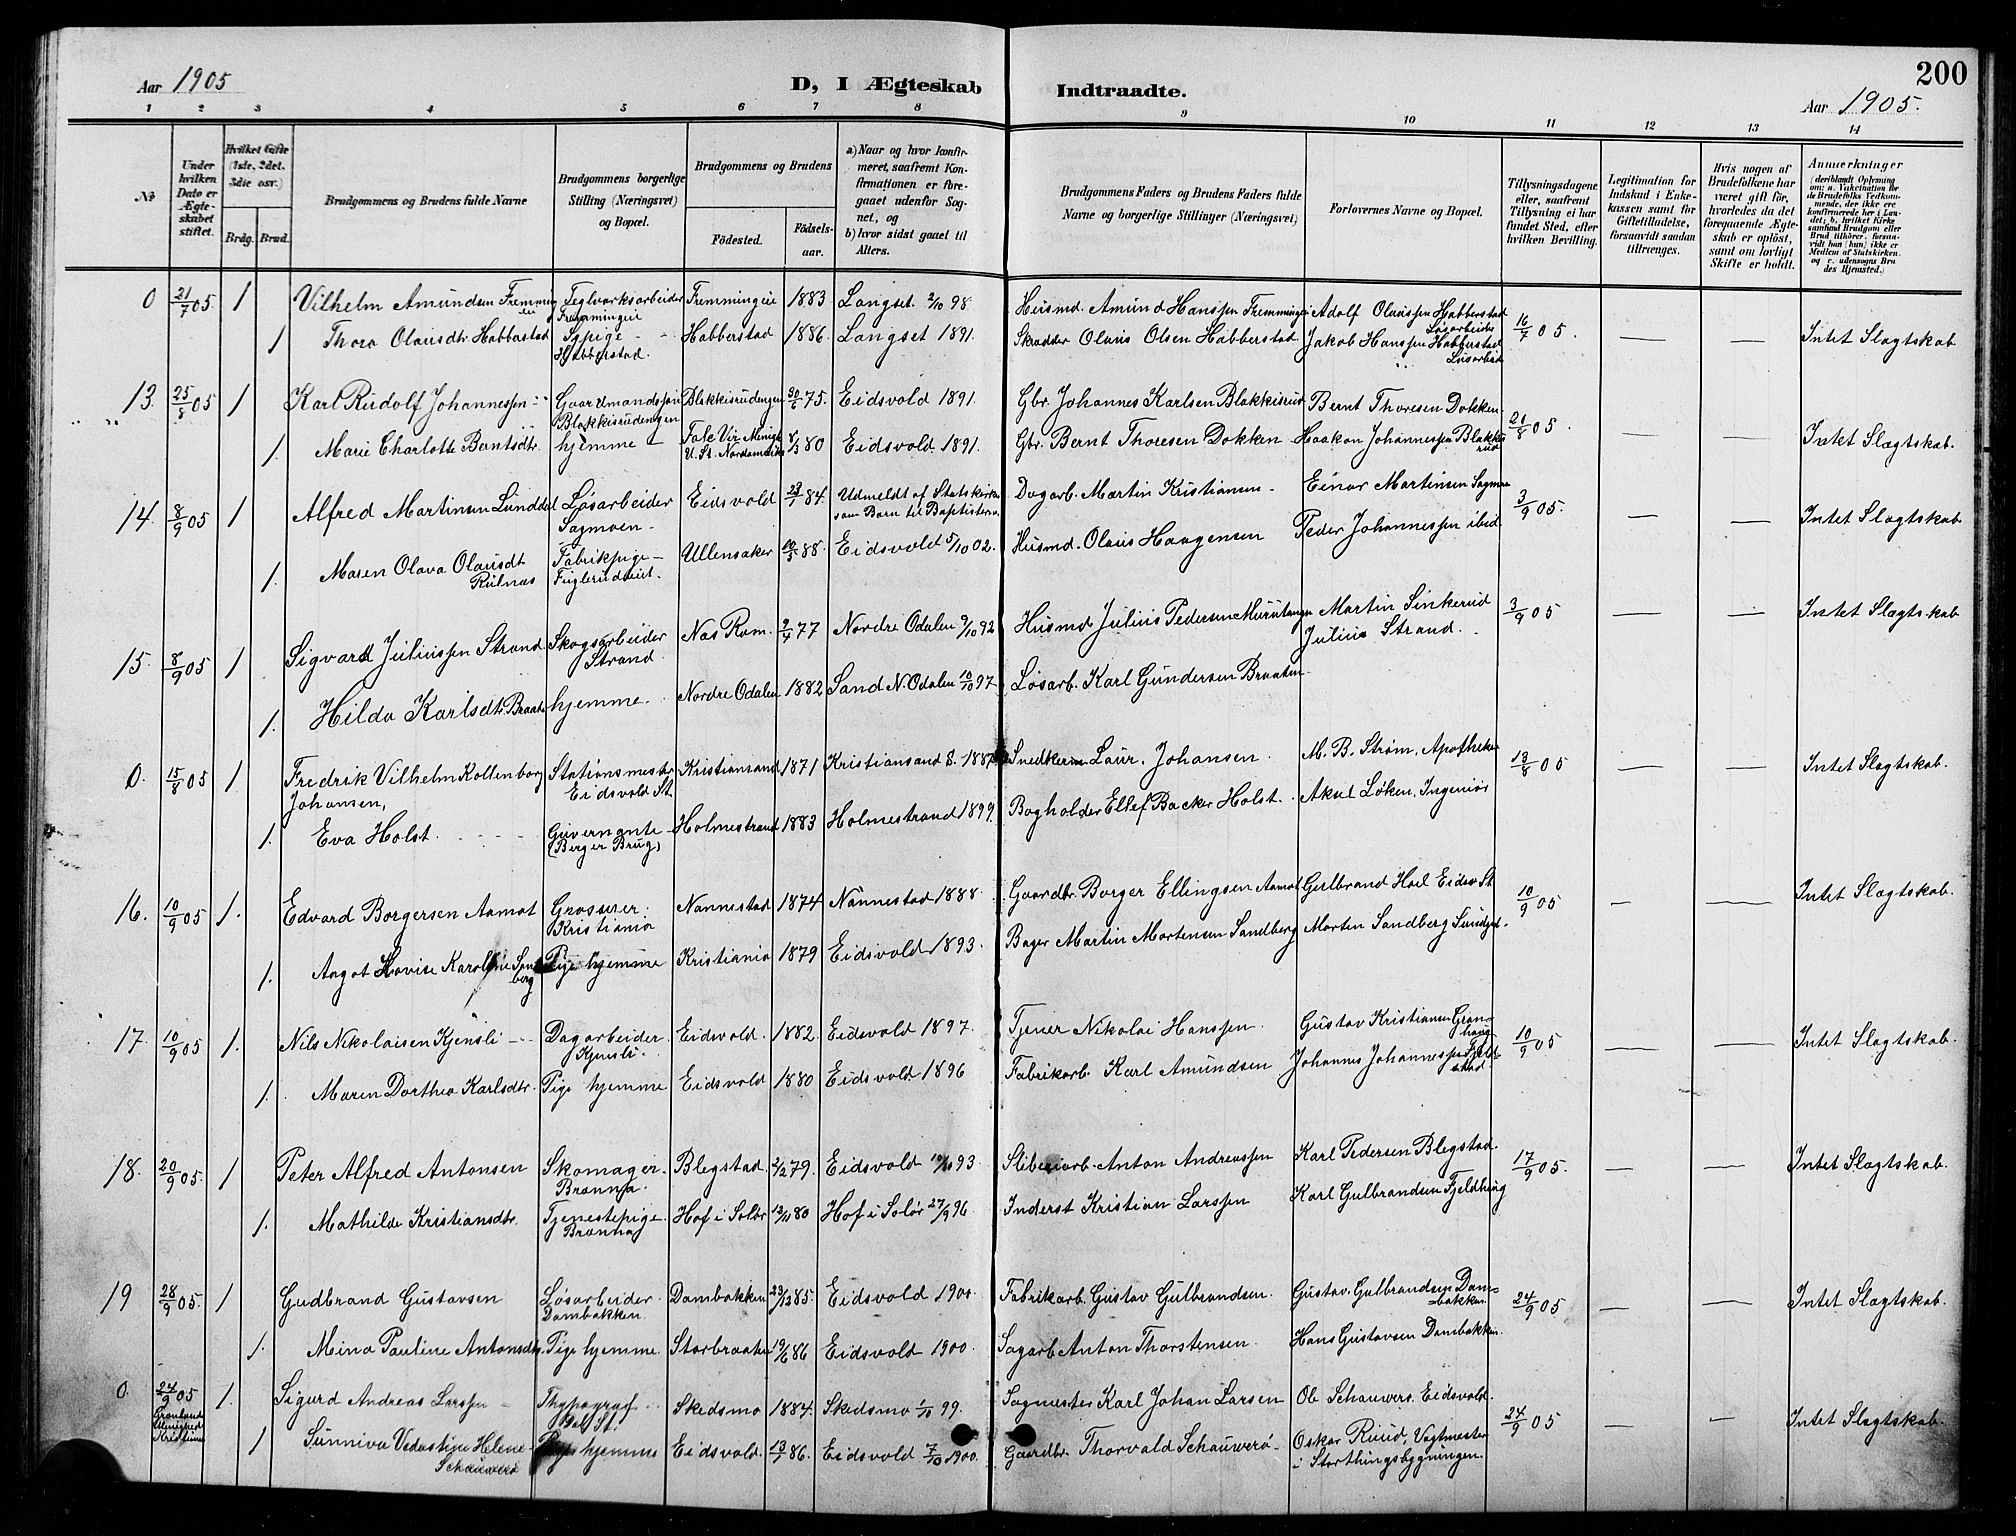 200
Aar 1905
D, I Ægteskab Indtraadte.
Aar 1905.
1 2 3 4 5 6 7 8 9 10 11 12 13 14
No
Under hvilken Dato er Ægteskabet stiftet.
Hvilket Gifte (1ste, 2det, 3die osv.)
Brdg. Brud.
Brudgommens og Brudens fulde Navne
Brudgommens borgerlige Stilling (Næringsvei) og Bopæl.
Brudgommens og Brudens
Födested.
Födselsaar.
a) Naar og hvor konfirmeret, saafremt Konfirmationen er foregaaet udenfor Sognet, og
b) hvor sidst gaaet til Alters.
Brudgommens Faders og Brudens Faders fulde Navne og borgerlige Stillinger (Næringsvei)
Forlovernes Navne og Bopæl.
Tillysningsdagene eller, saafremt Tillysning ei har fundet Sted, efter hvilken Bevilling.
Legitimation for Indskud i Enkekassen samt for Giftetilladelse, forsaavidt saadan tiltrænges.
Hvis nogen af Brudefolkene har været gift før, hvorledes da det foregaaende Ægteskab er oplöst, samt om lovligt Skifte er holdt.
Anmærkninger
(deriblandt Oplysning om: a. Vakcination for de Brudefolks Vedkommende, der ikke ere konfirmerede her i Landet; b. hvilket Kirkesamfund Brudgom eller Brud tilhörer, forsaavidt han (hun) ikke er Medlem af Statskirken, og c. udensogns Brudes Hjemsted.)
0 21/7 05 1 Vilhelm Amundsen Fremmingei Teglværksarbeider Fremmingeie Fremmingeie 1883 Langset 2/10 98 Husmd. Amund Hanssen Fremmingei Adolf Olaussen Habberstad Løsarbeider 16/7 05.
1 Thora Olausdtr Habberstad Sypige Habberstad. Habberstad 1886 Langset 1891. Skrædder Olaus Olsen Habberstad Jakob Hanssen Habberstad Løsarbeid — — Intet Slægtskab
13. 25/8 05 1 Karl Rudolf Johannessen Gaardmandssøn Blakkisrudengen Blakkisrudengen 30/6 75. Eidsvold 1891. Gbr. Johannes Karlsen Blakkisrud Bernt Thoresen Dokken 20/8 05.
1. Marie Charlotte Berntsdtr. hjemme U. St. Nordamerika 8/3 80 Eidsvold 1891. Gbr. Bernt Thoresen Dokken Haakon Johannessen Blakkisrud — — Intet Slægtskab.
14. 8/9 05 1 Alfred Martinsen Lunddal Løsarbeider Sagmoen Eidsvold 84. Udmeldt af Statskirken som Barn til Baptisterne Dagarb. Martin Kristiansen Einar Martinsen Sagmoe 3/9 05. — — Intet Slægtskab
1. Maren Olava Olausdt Rulnæs Fabrikpige Fuglerudeiet. Ullensaker 88. Eidsvold 5/10 02. Husmd. Olaus Haagensen Peder Johannessen ibid
15. 8/9 05 1 Sigvard Juliussen Strand Skogsarbeider Strand Næs Rom. 2/4 77 Nordre Odalen 9/10 92 Husmd Julius Pedersen Murutangen Martin Sinkerud Julius Strand. 3/9 05 — — Intet Slægtskab
1. Hilda Karlsdtr Braaten hjemme. Nordre Odalen 1882 Sand N. Odalen 10/10 97 Løsarb. Karl Gundersen Braaten
0. 15/8 05 1. Fredrik Vilhelm Kollenborg Johansen, Stationsmester Eidsvold St Kristiansand 1871 Kristiansand S. 1887 Snedker Laur. Johansen. M. B. Strøm, Apotheker 13/8 05 — — Intet Slægtskab.
1. Eva Holst Guvernante (Berger Brug) Holmestrand 1883 Holmestrand 1899 Bogholder Ellef Backer Holst. Aksel Løken, Ingeniør
16. 10/9 05 1. Edvard Borgersen Aamot Grosserer. Kristiania Nannestad 1874 Nannestad 1888. Gaardbr. Borger Ellingsen Aamot Gulbrand Hoel Eidsv St 10/9 05 — — Intet Slægtskab.
1. Aagot Hovise Karoline Sandberg Pige hjemme Kristiania 1879 Eidsvold 1893. Bager Martin Mortensen Sandberg Morten Sandberg Sundget.
17. 10/9 05 1. Nils Nikolaisen Kjensli Dagarbeider Kjensli. Eidsvold. 1882. Eidsvold 1897. Tjener Nikolai Hanssen. Gustav Kristiansen Granhaug 10/9 05 — — Intet Slægtskab.
1. Maren Dorthea Karlsdtr. Pige hjemme Eidsvold 1880 Eidsvold 1896 Fabrikarb. Karl Amundsen Johannes Johannessen Fjeldstad
18. 20/9 05. 1 Peter Alfred Antonsen Skomager Brønna. Blegstad 2/2 79. Eidsvold 93 Sliberiarb. Anton Andreassen Karl Pedersen Blegstad. 17/9 05. — — Intet Slægtskab.
1. Mathilde Kristiansdtr. Tjenestepige Brønna Hof i Solør 80 Hof i Solør 27/9 96 Inderst Kristian Larssen Karl Gulbrandsen Fjeldhaug
19 28/9 05. 1 Gudbrand Gustavsen Løsarbeider Dambakken. Dambakken 23/12 85. Eidsvold 1900. Fabrikarb. Gustav Gulbrandsen. Gustav Gulbrandsen Dambakken 24/9 05 — — Intet Slægtskab.
1. Mina Pauline Antonsdtr. Pige hjemme. Storbraaten 19/6 86 Eidsvold 1900. Sagarb Anton Thorstensen. Hans Gustavsen Dambakken
0. 24/9 05 Grønlands Menighed Kristiania 1. Sigurd Andreas Larssen Thypograf Skedsmo 1884. Skedsmo 1/10 99. Sagmester Karl Johan Larsen Ob Schauwers. Eidsvold. 24/9 05 — — Intet Slægtskab.
1 Sunniva Vedastine Helene Schauwerø Pige hjemme Eidsvold. 86. Eidsvold 7/10 1900. Gaardbr. Thorvald Schauwerø Oskar Ruud, Vagtmester i Storthingsbygningen.